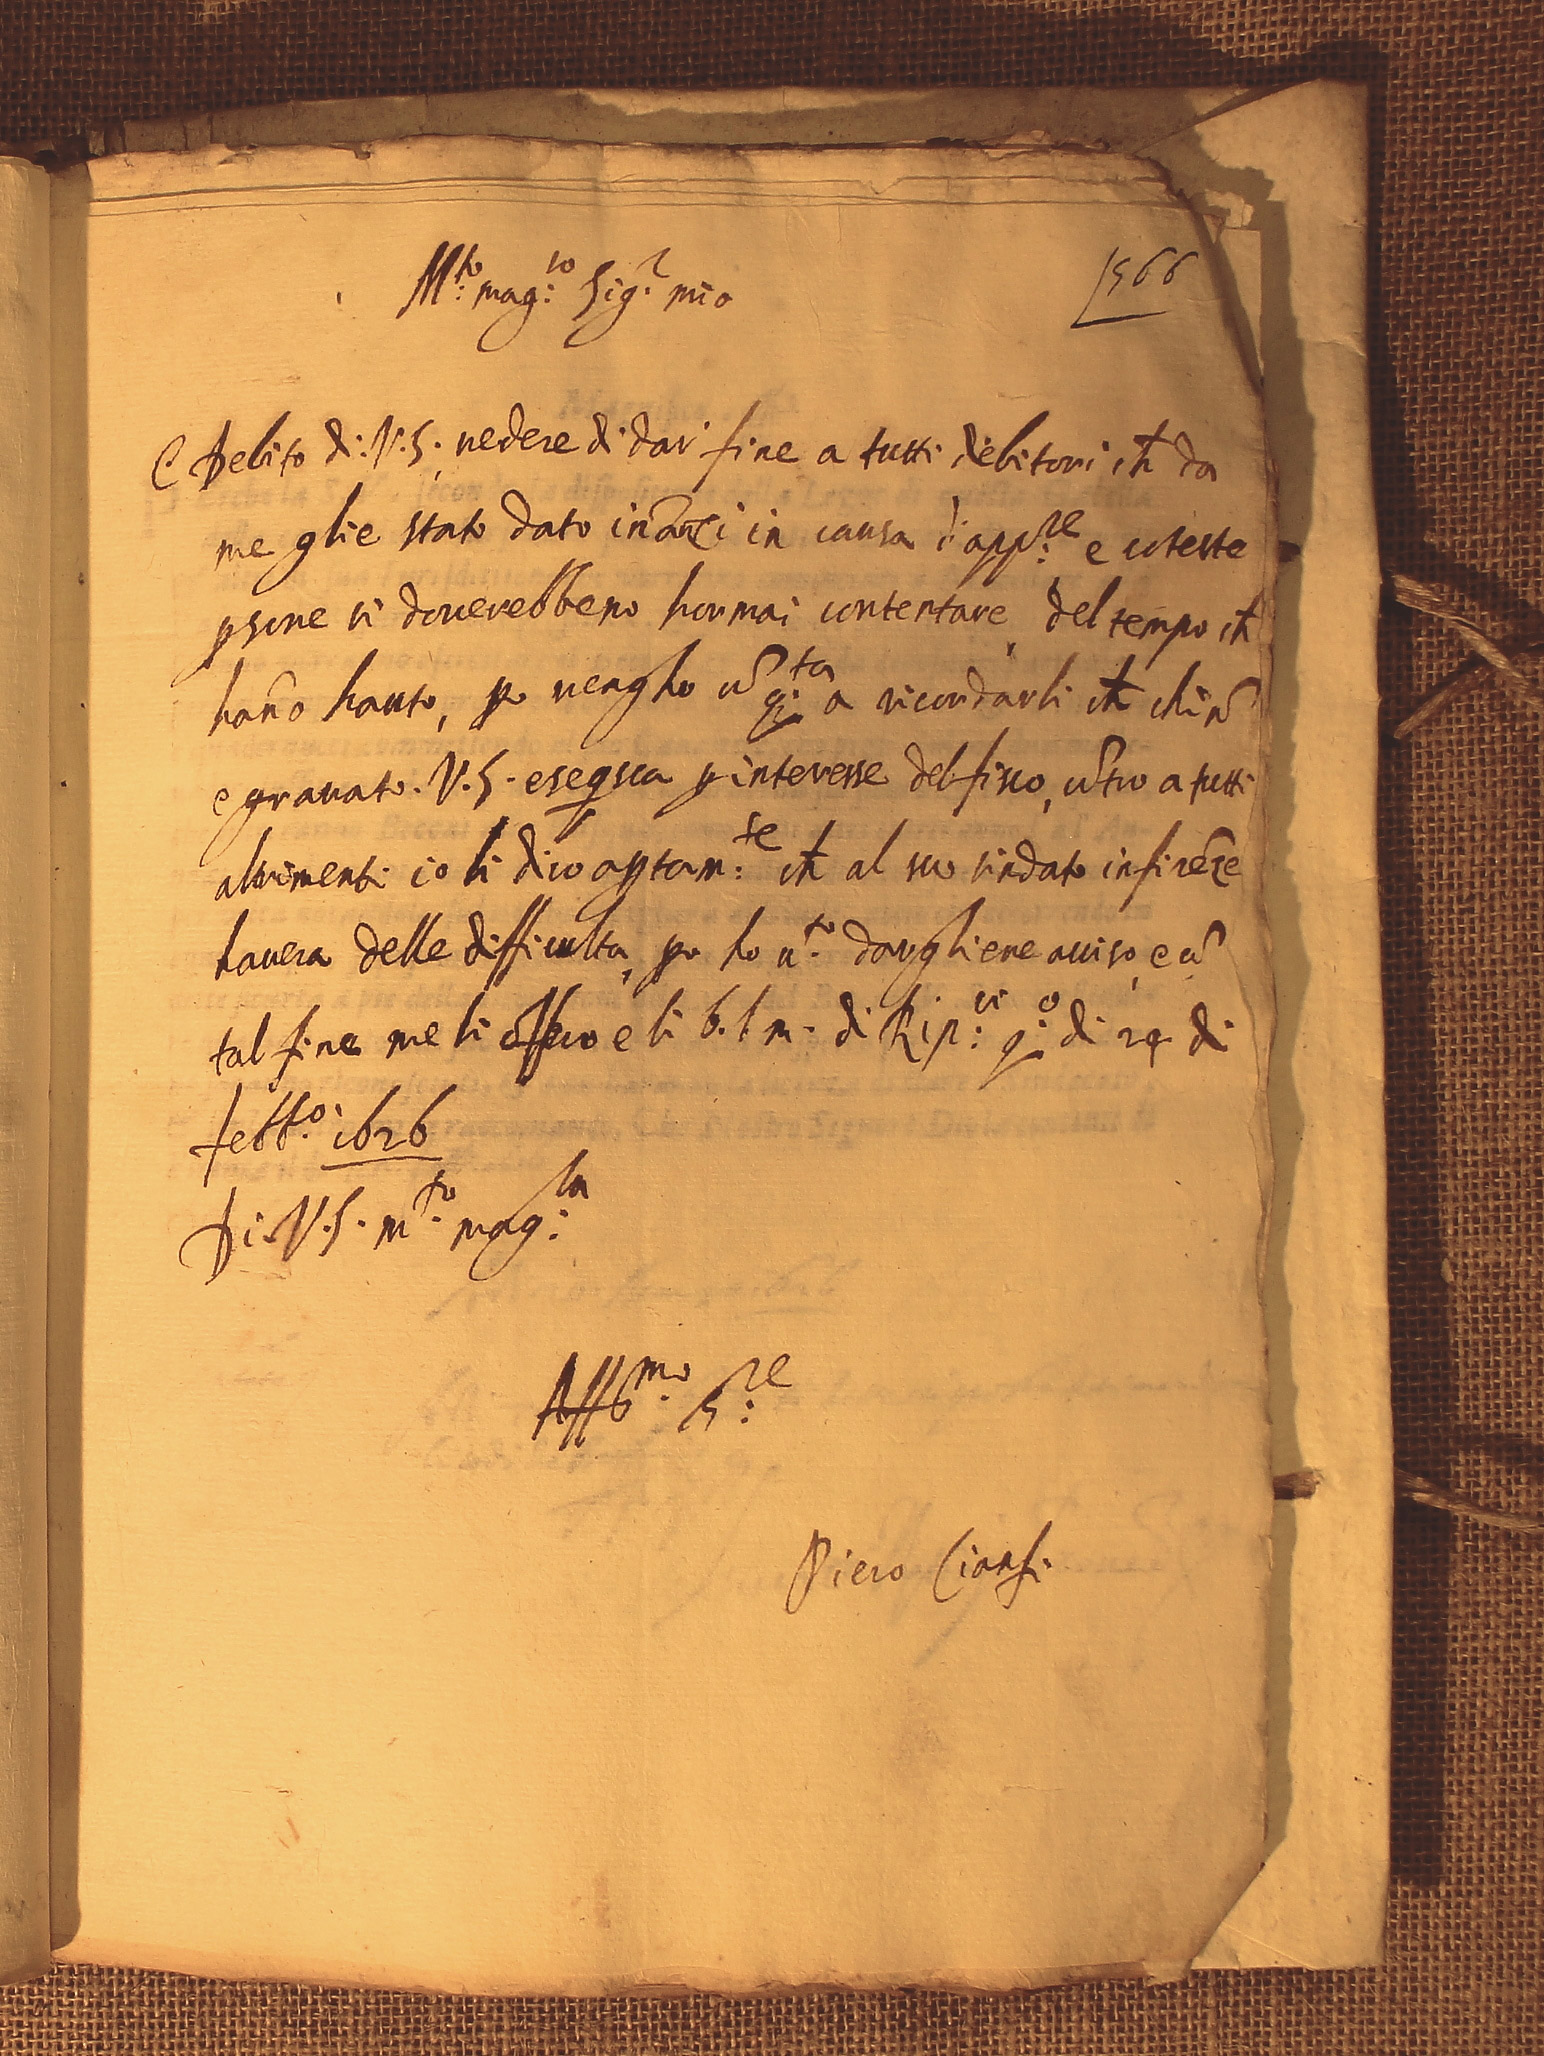 M.to mag.co Sig.r mio
1566
E Debito di V.S. vedere di dar fine a tutti debitori ch da
me glie stato dato inãzi in causa di app.re e coteste
psone si doverebbeno hormai contentare del tempo ch
hano hauto, po vengho cõ q.ta a ricordarli ch chi nõ
e gravato V.S. eseqsca p interesse del fisco, cõtro a tutti
altrimenti io li dico aptam.te ch al suo sindato in firẽze
havera delle difficulta, po ho v.to darghiene aviso, e cõ
tal fine me li offero e li b. l. m. di Rip. q.o di 24 di
febb.o 1626
Di V.S. m.to mag.ca
Aff.mo S.re
Piero Cianfi